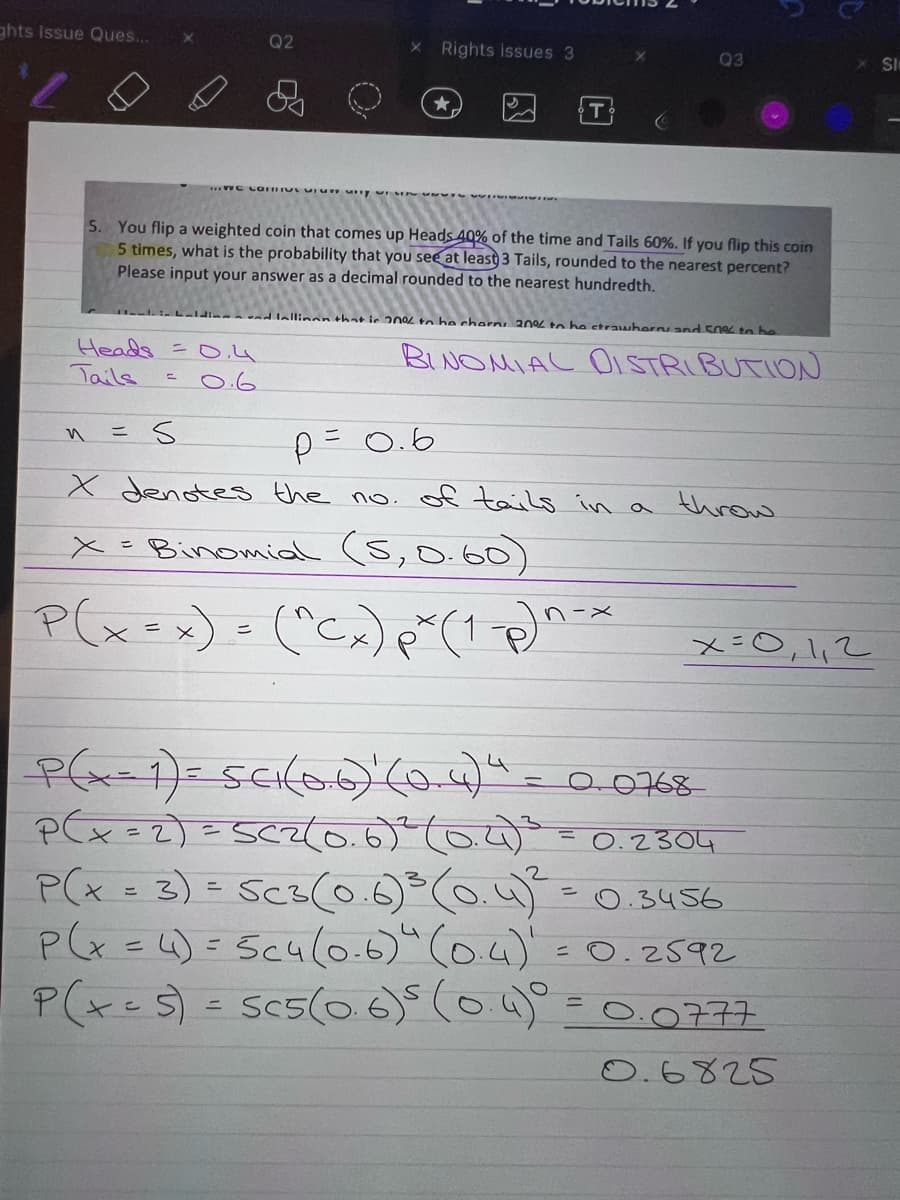 ghts Issue Ques... × Q2 × Rights issues 3 × Q3 × Sl
5. You flip a weighted coin that comes up Heads 40% of the time and Tails 60%. If you flip this coin
5 times, what is the probability that you see at least 3 Tails, rounded to the nearest percent?
Please input your answer as a decimal rounded to the nearest hundredth.
Heads = 0.4
Tails = 0.6
BINOMIAL DISTRIBUTION
n = 5 p = 0.6
X denotes the no. of tails in a throw
X = Binomial (5, 0.60)
P(x = x) = (ⁿCₓ) pˣ (1-p)ⁿ⁻ˣ x = 0, 1, 2
P(x = 1) = 5C1(0.6)¹(0.4)⁴ = 0.0768
P(x = 2) = 5C2(0.6)²(0.4)³ = 0.2304
P(x = 3) = 5C3(0.6)³(0.4)² = 0.3456
P(x = 4) = 5C4(0.6)⁴(0.4)¹ = 0.2592
P(x = 5) = 5C5(0.6)⁵(0.4)⁰ = 0.0777
0.6825